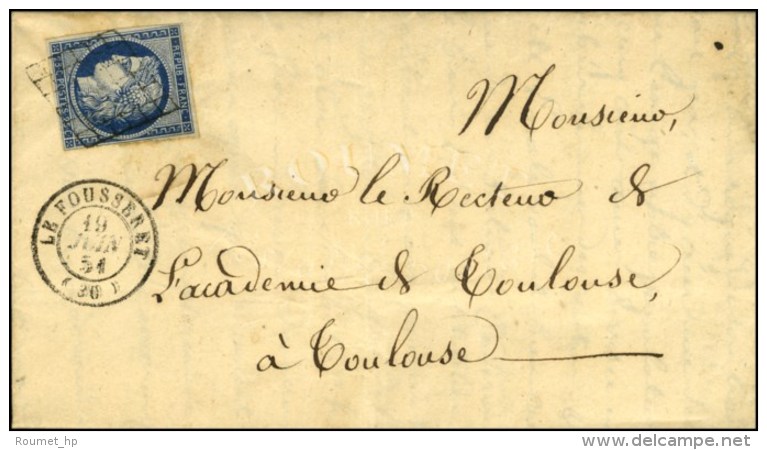 REPUB. FRANC.
Monsieur,
LE FOUSSERET
19
JUIN
51
(30)
Monsieur le Recteur de
l'académie de Toulouse,
à Toulouse
Roumet_hp
delcampe.net